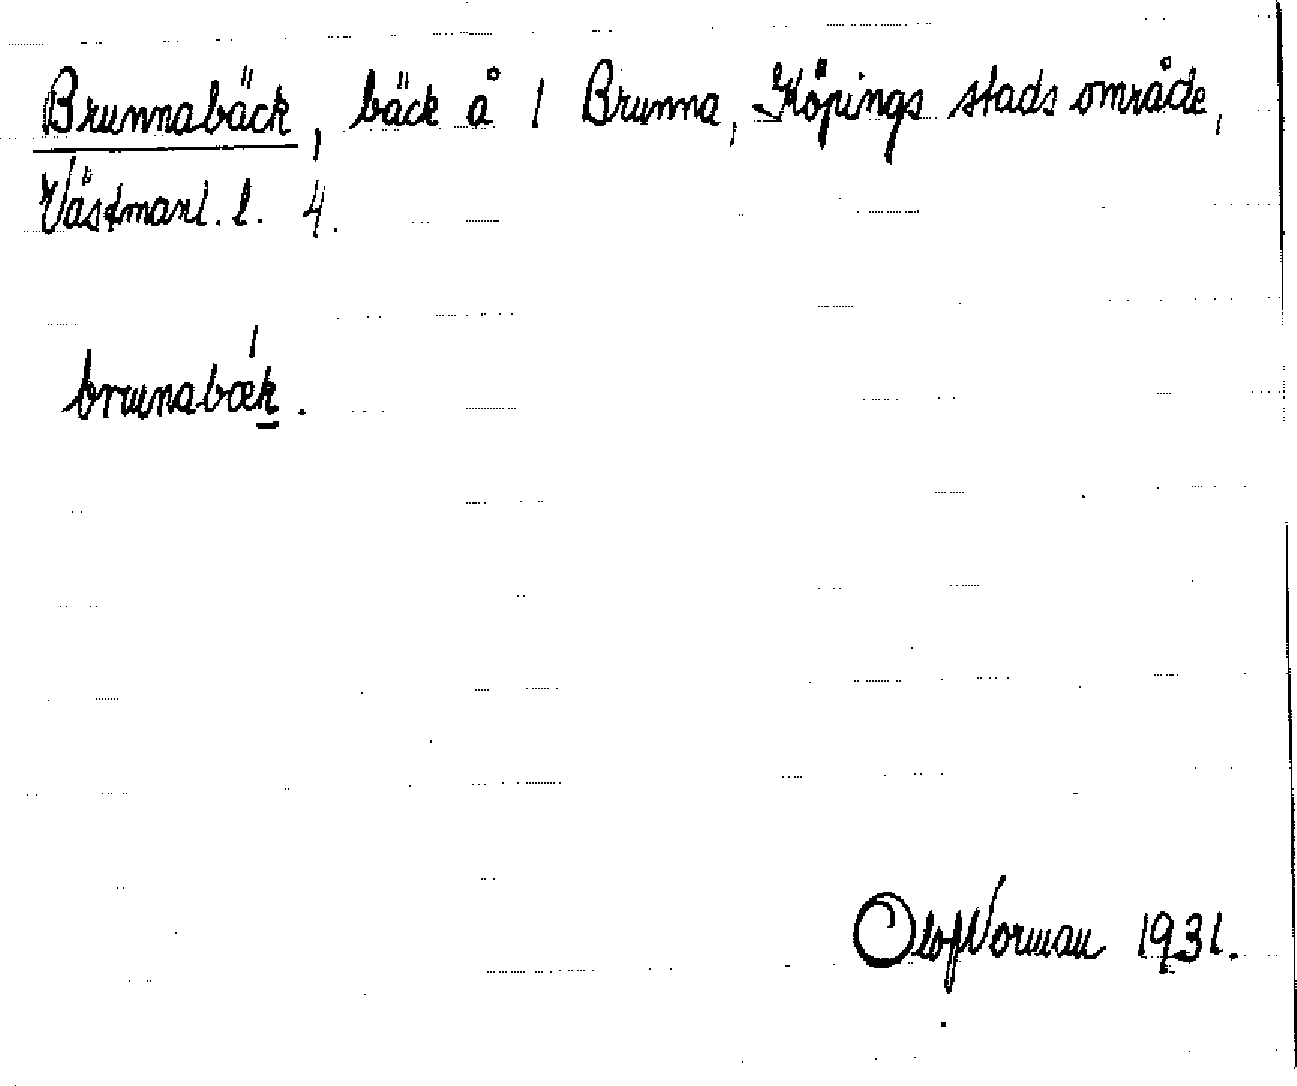 Brunnabäck, bäck å 1 Brunna, Köpings stads område,
Västmanl. l. 4.
brunabæk.
Olof Norman 1931.